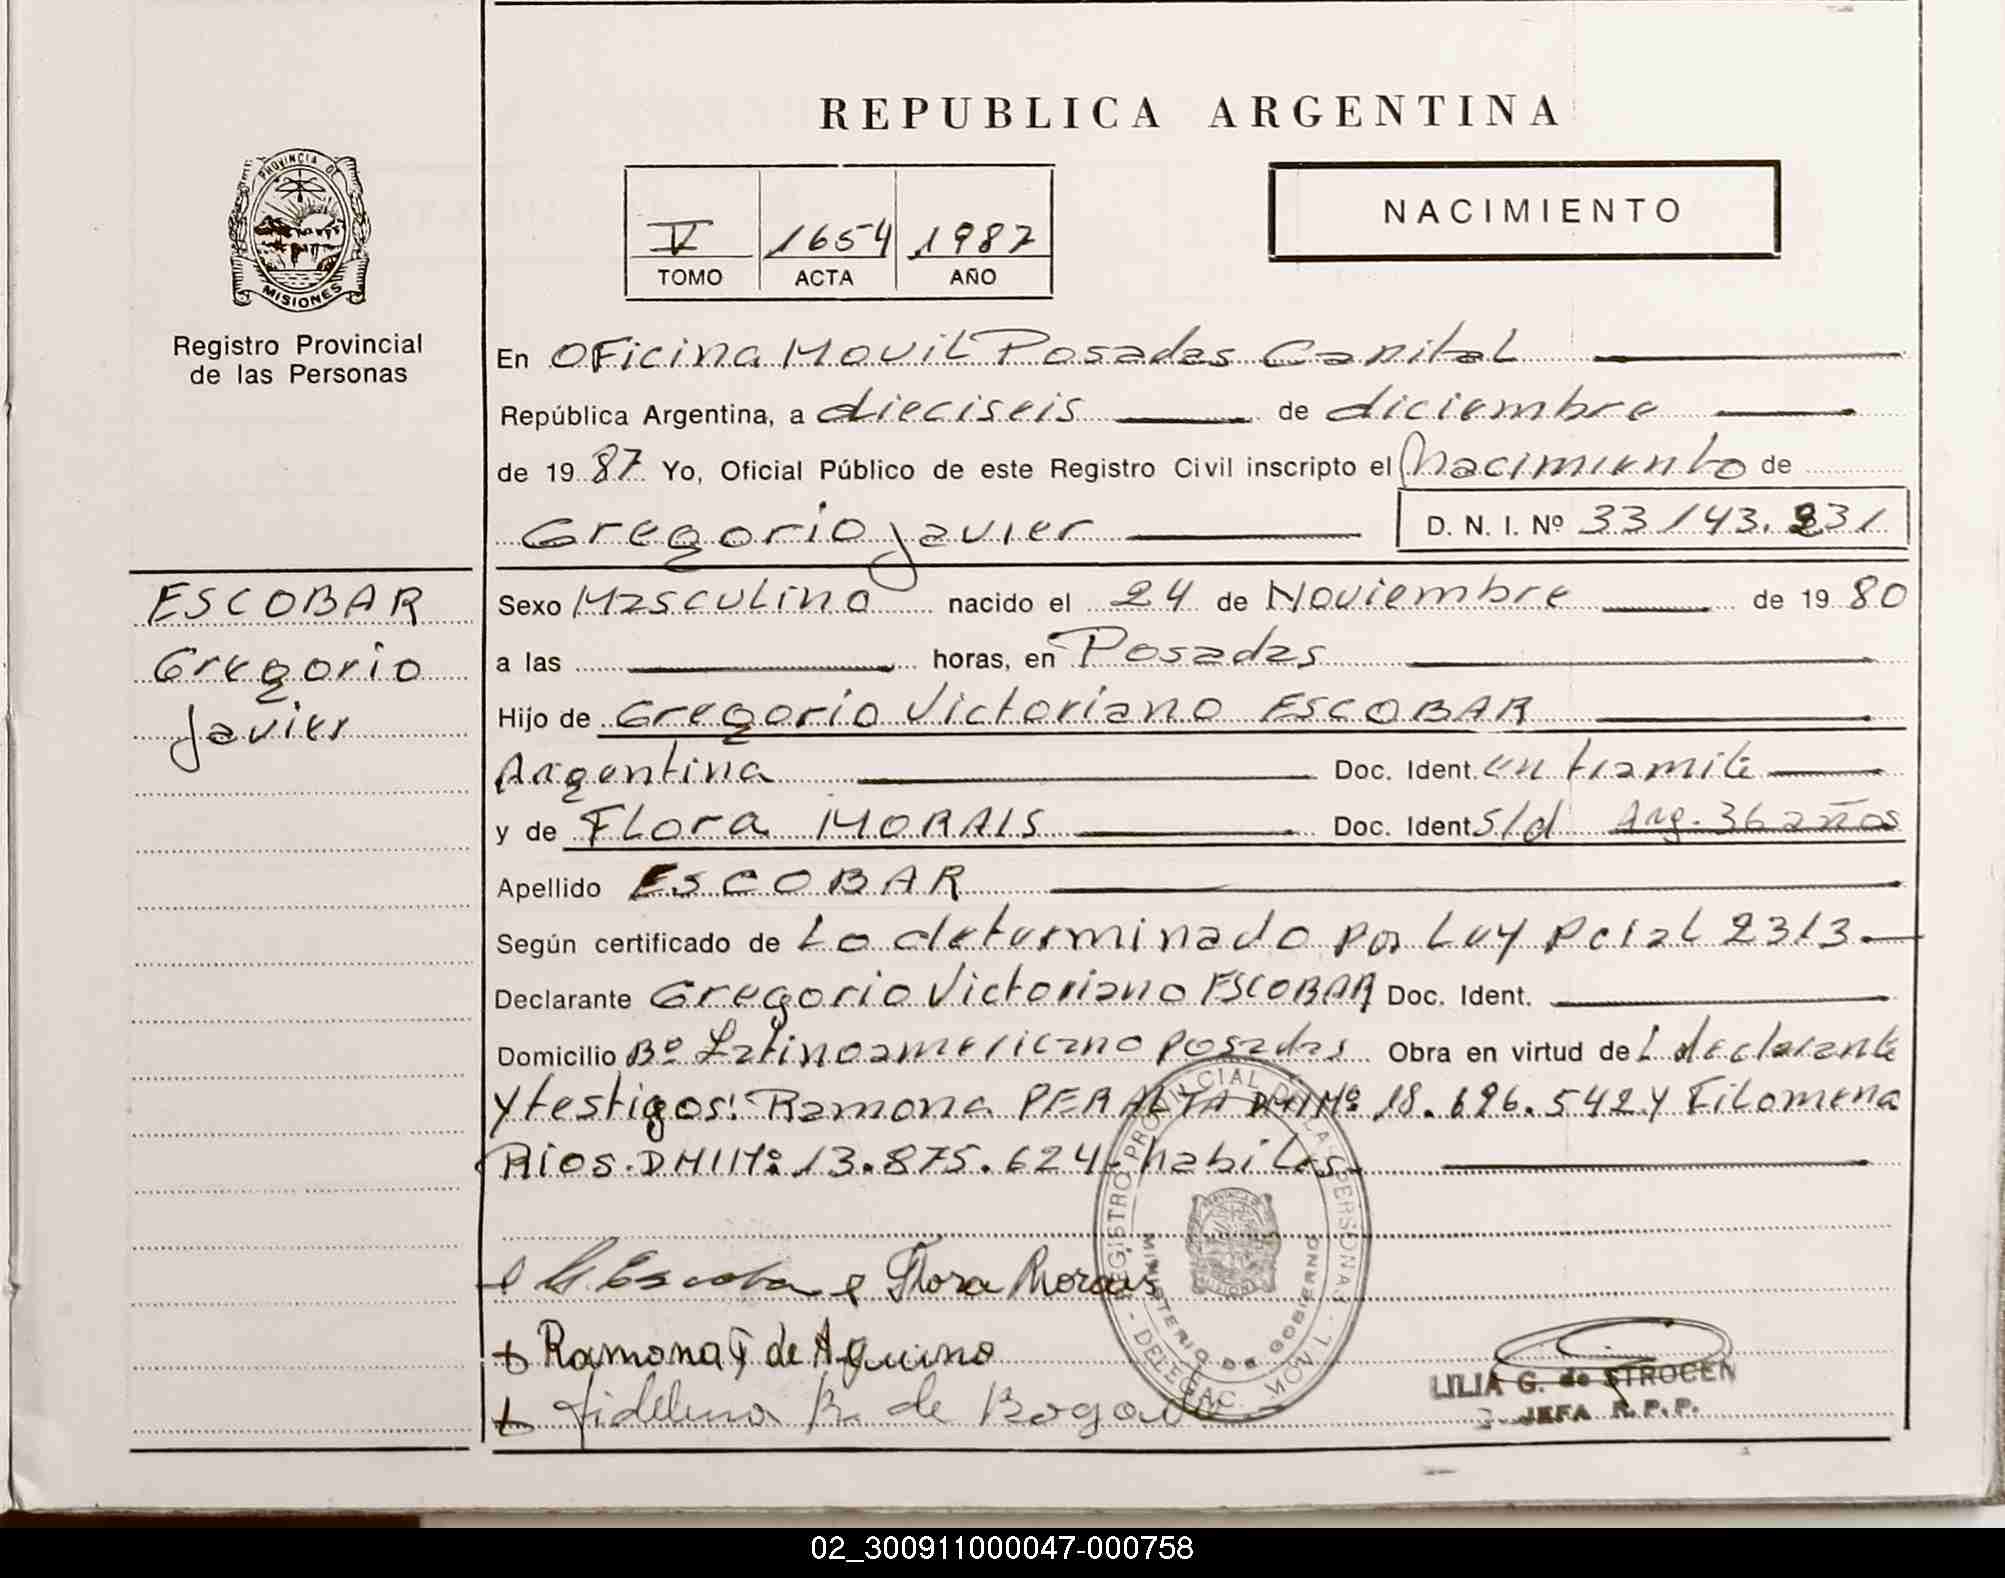 REPUBLICA ARGENTINA
PROVINCIA DE
MISIONES
Registro Provincial
de las Personas
V 1654 1987
TOMO ACTA AÑO
NACIMIENTO
En OFicina Movil Posadas Capital
República Argentina, a dieciseis de diciembre
de 19 87 Yo, Oficial Público de este Registro Civil inscripto el Nacimiento de
Gregorio Javier D. N. I. Nº 33143.231
ESCOBAR
Gregorio
Javier
Sexo Masculino nacido el 24 de Noviembre de 19 80
a las horas, en Posadas
Hijo de Gregorio Victoriano ESCOBAR
Argentina Doc. Ident. en tramite
y de Flora MORAIS Doc. Ident S/d Arg. 36 años
Apellido ESCOBAR
Según certificado de Lo determinado por Ley Pcial 2313
Declarante Gregorio Victoriano ESCOBAR Doc. Ident.
Domicilio Bº Latinoamericano Posadas Obra en virtud de L declarante
y testigos: Ramona PERALTA DNINº 18.696.542 y Filomena
Rios. DNINº 13.875.624. habiles.
REGISTRO PROVINCIAL DE LAS PERSONAS
MINISTERIO DE GOBIERNO
DELEGAC. MOVIL
G. Escobar Flora Morais
Ramona de Aquino
Fidelina R. de Bogado
LILIA G. de STROCEN
JEFA R.P.P.
02_300911000047-000758